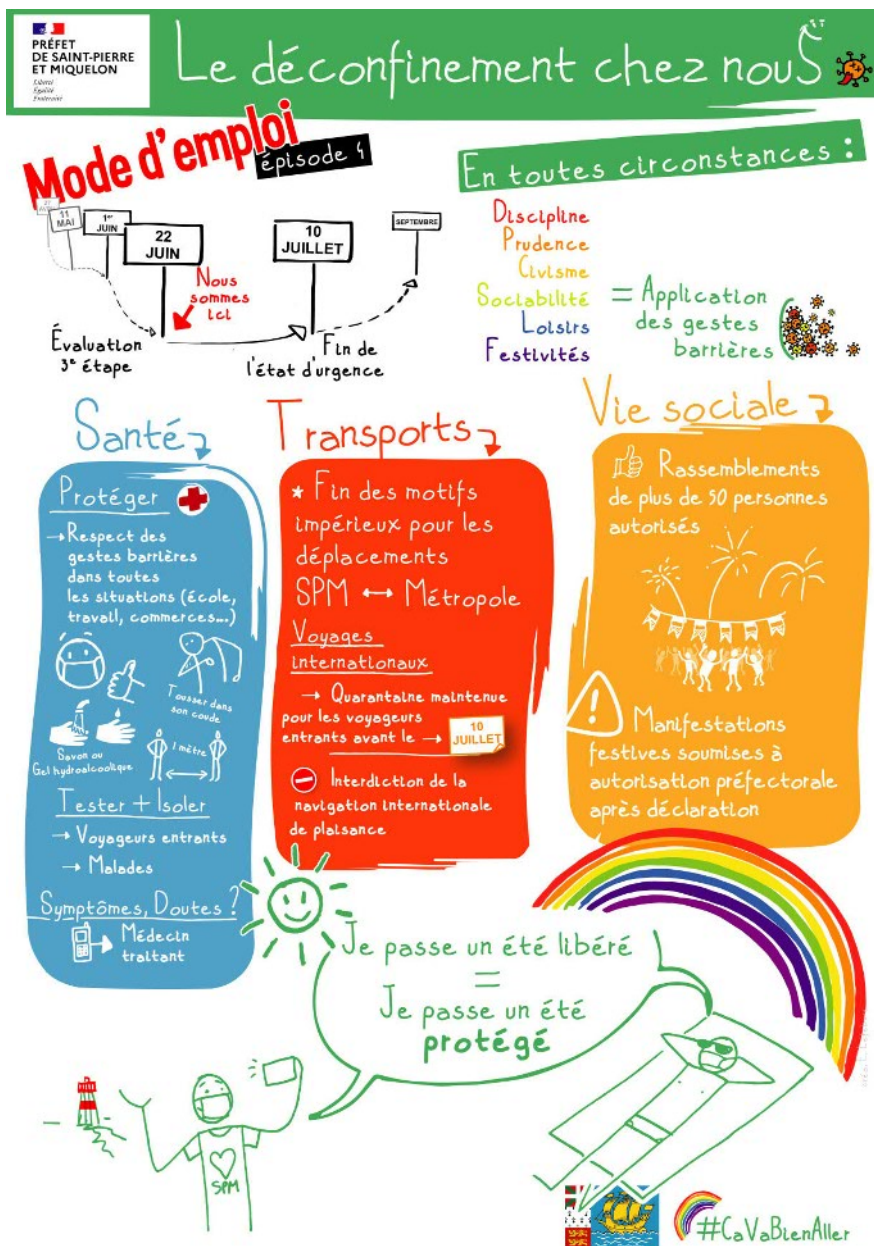 PRÉFET
DE SAINT-PIERRE
ET MIQUELON
Liberté
Égalité
Fraternité
Le déconfinement chez nouS
Mode d'emploi
épisode 4
11
MAI
1er
JUIN
22
JUIN
10
JUILLET
SEPTEMBRE
Nous
sommes
ici
Évaluation
3e étape
Fin de
l'état d'urgence
En toutes circonstances :
Discipline
Prudence
Civisme
Sociabilité
Loisirs
Festivités
= Application
des gestes
barrières
Santé
Protéger
→ Respect des
gestes barrières
dans toutes
les situations (école,
travail, commerces...)
Tousser dans
son coude
Savon ou
Gel hydroalcoolique
1 mètre
Tester + Isoler
→ Voyageurs entrants
→ Malades
Symptômes, Doutes ?
Médecin
traitant
Transports
* Fin des motifs
impérieux pour les
déplacements
SPM ↔ Métropole
Voyages
internationaux
→ Quarantaine maintenue
pour les voyageurs
entrants avant le →
10
JUILLET
Interdiction de la
navigation internationale
de plaisance
Vie sociale
Rassemblements
de plus de 50 personnes
autorisés
!
Manifestations
festives soumises à
autorisation préfectorale
après déclaration
Je passe un été libéré
=
Je passe un été
protégé
SPM
#CaVaBienAller